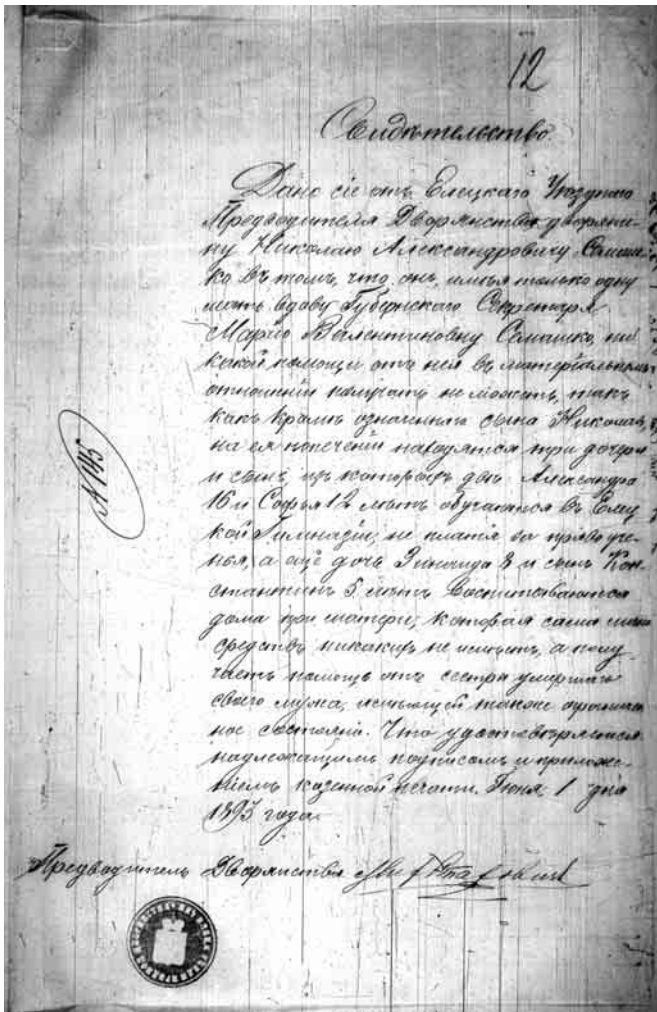 12
Свидѣтельство.
Дано сіе отъ Елецкаго Уѣзднаго
Предводителя Дворянства дворяни-
ну Николаю Александровичу Семаш-
ко въ томъ, что онъ, имѣя только одну
мать вдову Губернскаго Секретаря
Марію Валентиновну Семашко, ни-
какой помощи отъ нея въ матеріальномъ
отношеніи получать не можетъ, такъ
какъ кромѣ означеннаго сына Николая,
на ея попеченіи находятся три дочери
и сынъ, изъ которыхъ двѣ Александра
16 и Софья 12 лѣтъ обучаются въ Елец
кой Гимназіи, не платя за право уче-
нья, а еще дочь Зинаида 8 и сынъ Кон-
стантинъ 5 лѣтъ воспитываются
дома при матери, которая сама
средствъ никакихъ не имѣетъ, а полу-
чаетъ помощь отъ сестры умершаго
своего мужа, имѣющей также ограничен
ное состояніе. Что удостовѣряется
надлежащимъ подписомъ и приложе-
ніемъ казенной печати. Іюня 1 дня
1893 года.
Предводитель Дворянства